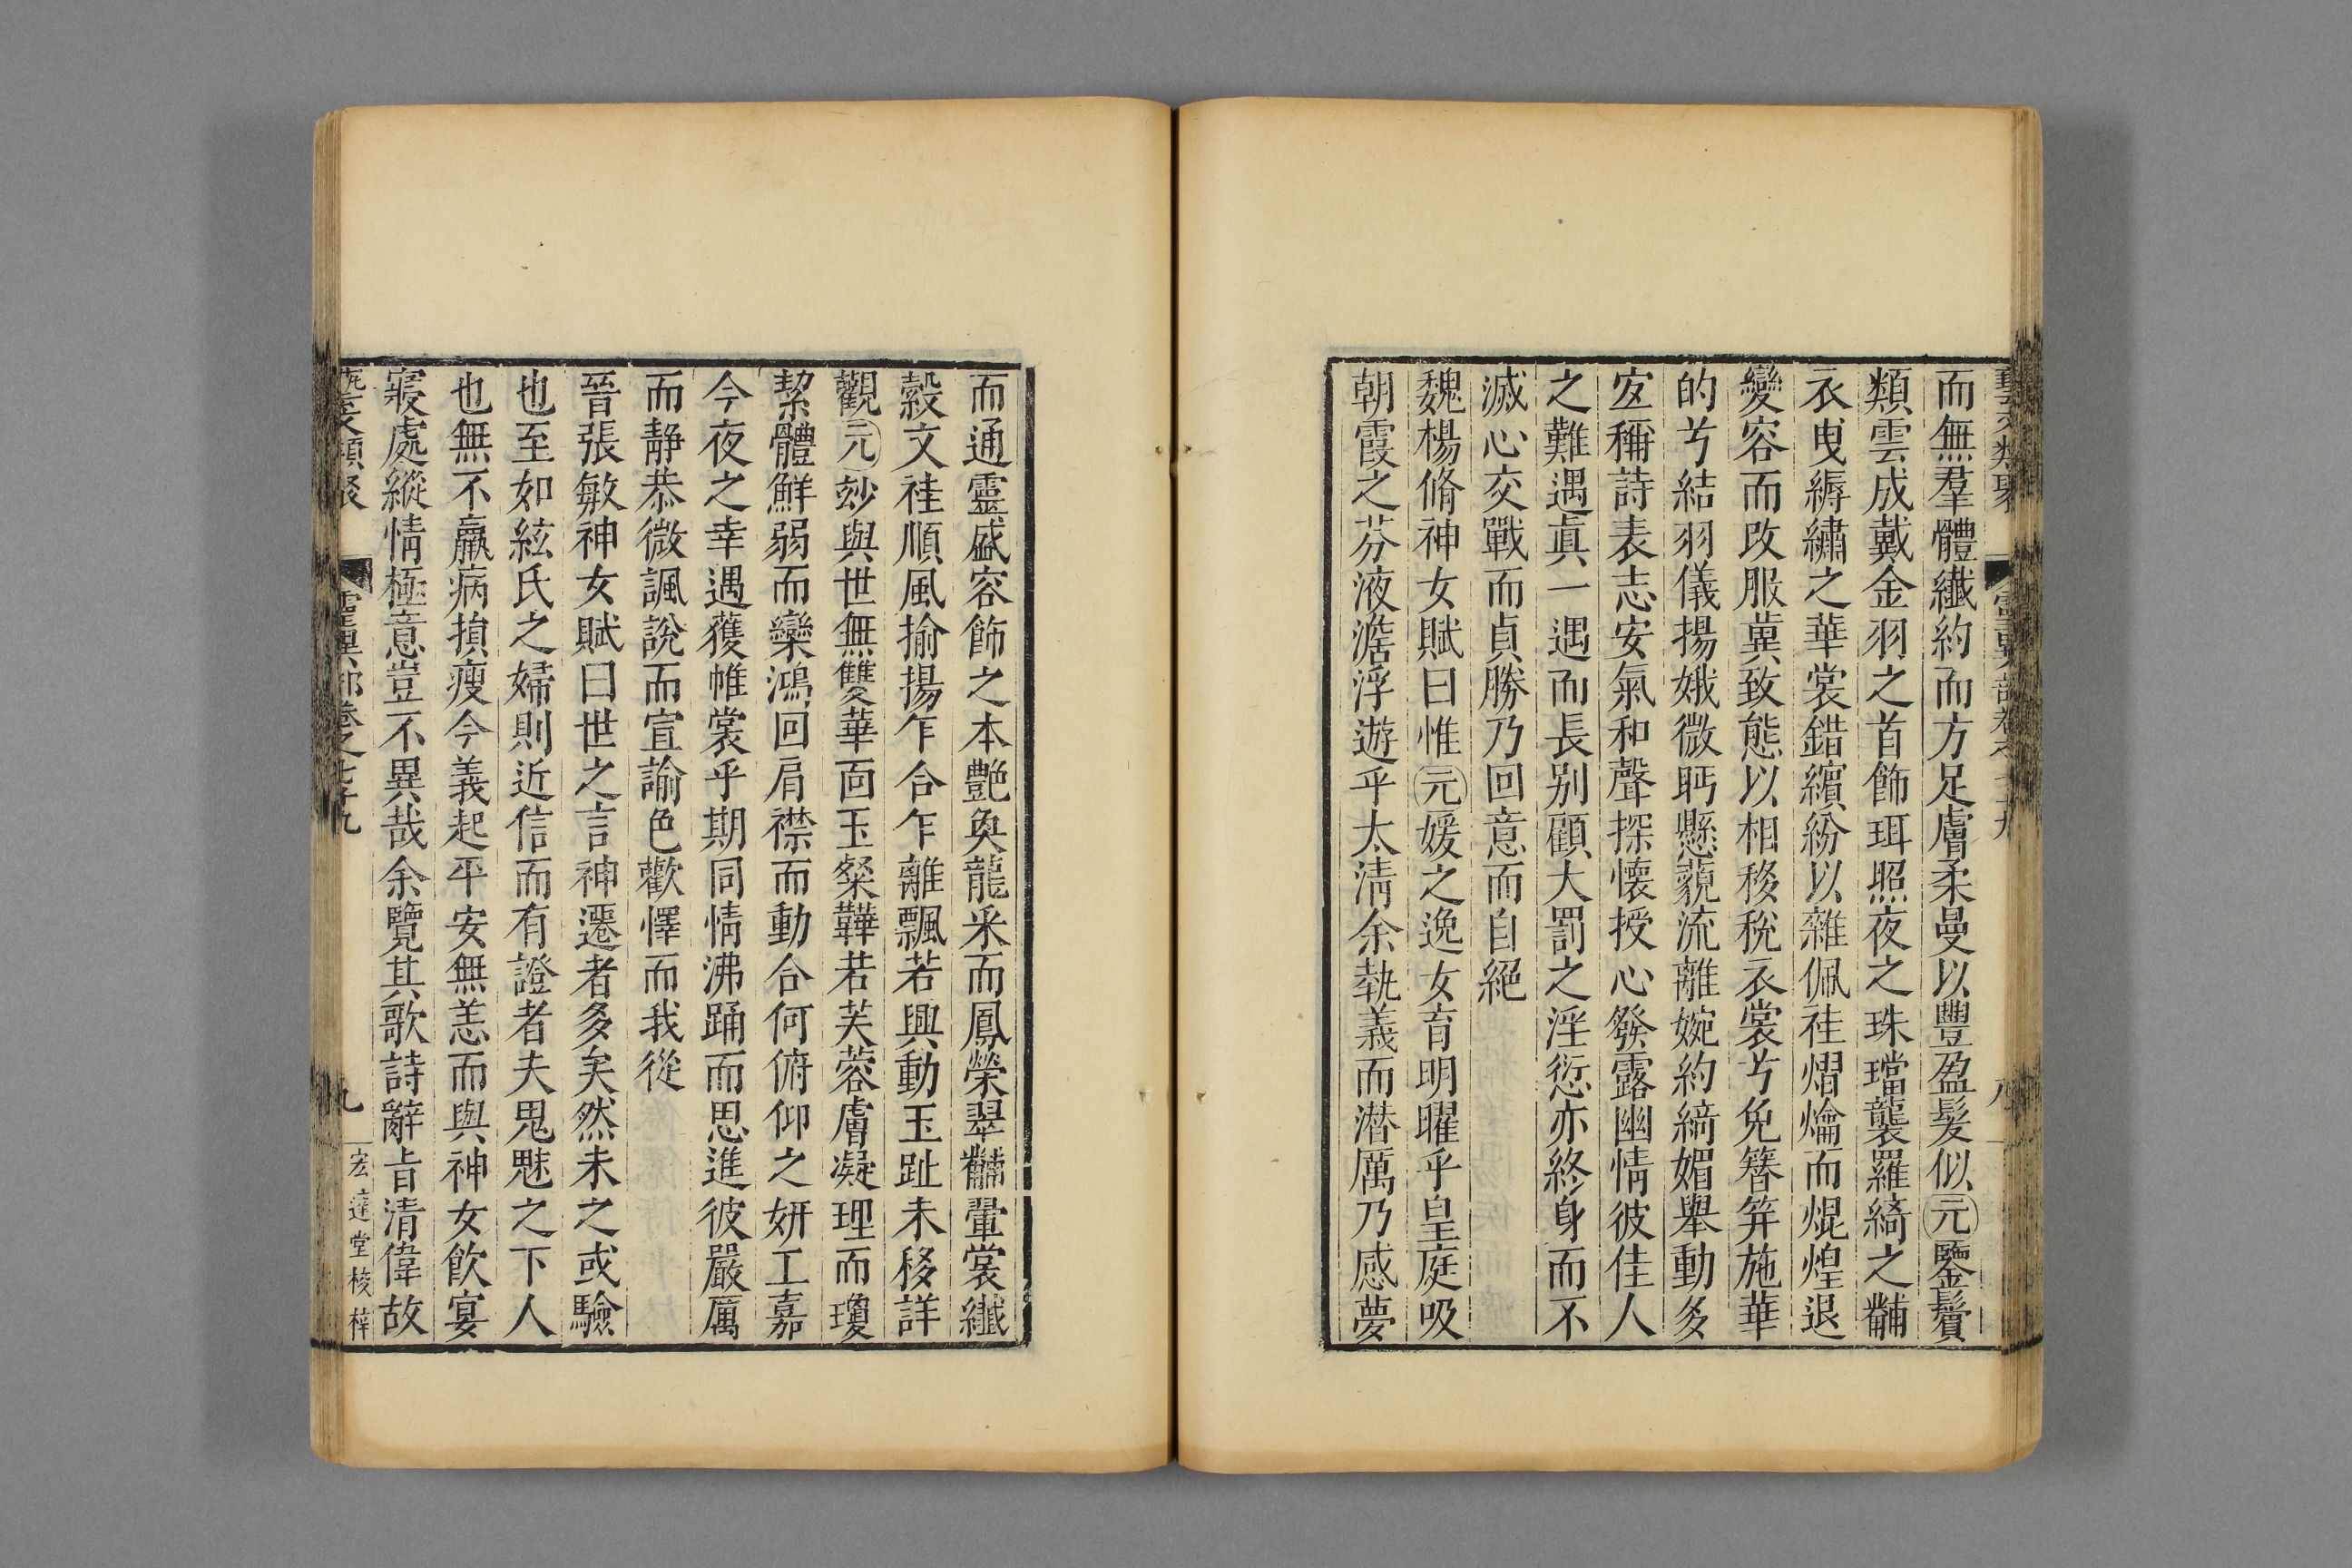 藝文類聚　靈異部卷之七十九　八
而無羣體纖約而方足膚柔曼以豐盈髮似元鑒鬢
類雲成戴金羽之首飾珥照夜之珠璫襲羅綺之黼
衣曳縟繡之華裳錯繽紛以雜佩袿熠爚而焜煌退
變容而改服兾致態以相移稅衣裳兮免簪笄施華
的兮結羽儀揚娥微眄懸藐流離婉約綺媚舉動多
宐稱詩表志安氣和聲探懷授心發露幽情彼佳人
之難遇眞一遇而長别顧大罰之淫愆亦終身而不
滅心交戰而貞勝乃回意而自絕
魏楊脩神女賦曰惟元媛之逸女育明曜乎皇庭吸
朝霞之芬液澹浮遊乎太清余執義而潛厲乃感夢
而通靈盛容飾之本艶奐龍釆而鳳榮翠黼翬裳纖
縠文袿順風揄揚乍合乍離飄若興動玉趾未移詳
觀元妙與世無雙華面玉粲韡若芙蓉膚凝理而瓊
絜體鮮弱而欒鴻回肩襟而動合何俯仰之妍工嘉
今夜之幸遇獲帷裳乎期同情沸踊而思進彼嚴厲
而静恭微諷說而宣諭色歡懌而我從
晉張敏神女賦曰世之言神遷者多矣然未之或驗
也至如絃氏之婦則近信而有證者夫鬼魅之下人
也無不羸病損瘦今義起平安無恙而與神女飲宴
寢處縱情極意豈不異哉余覽其歌詩辭旨清偉故
藝文類聚　靈異部卷之七十九　九　宏達堂校梓